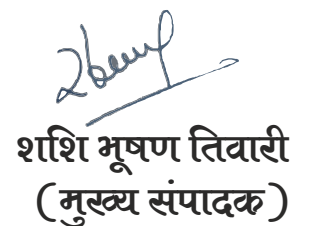 शशि भूषण तिवारी
(मुख्य संपादक)